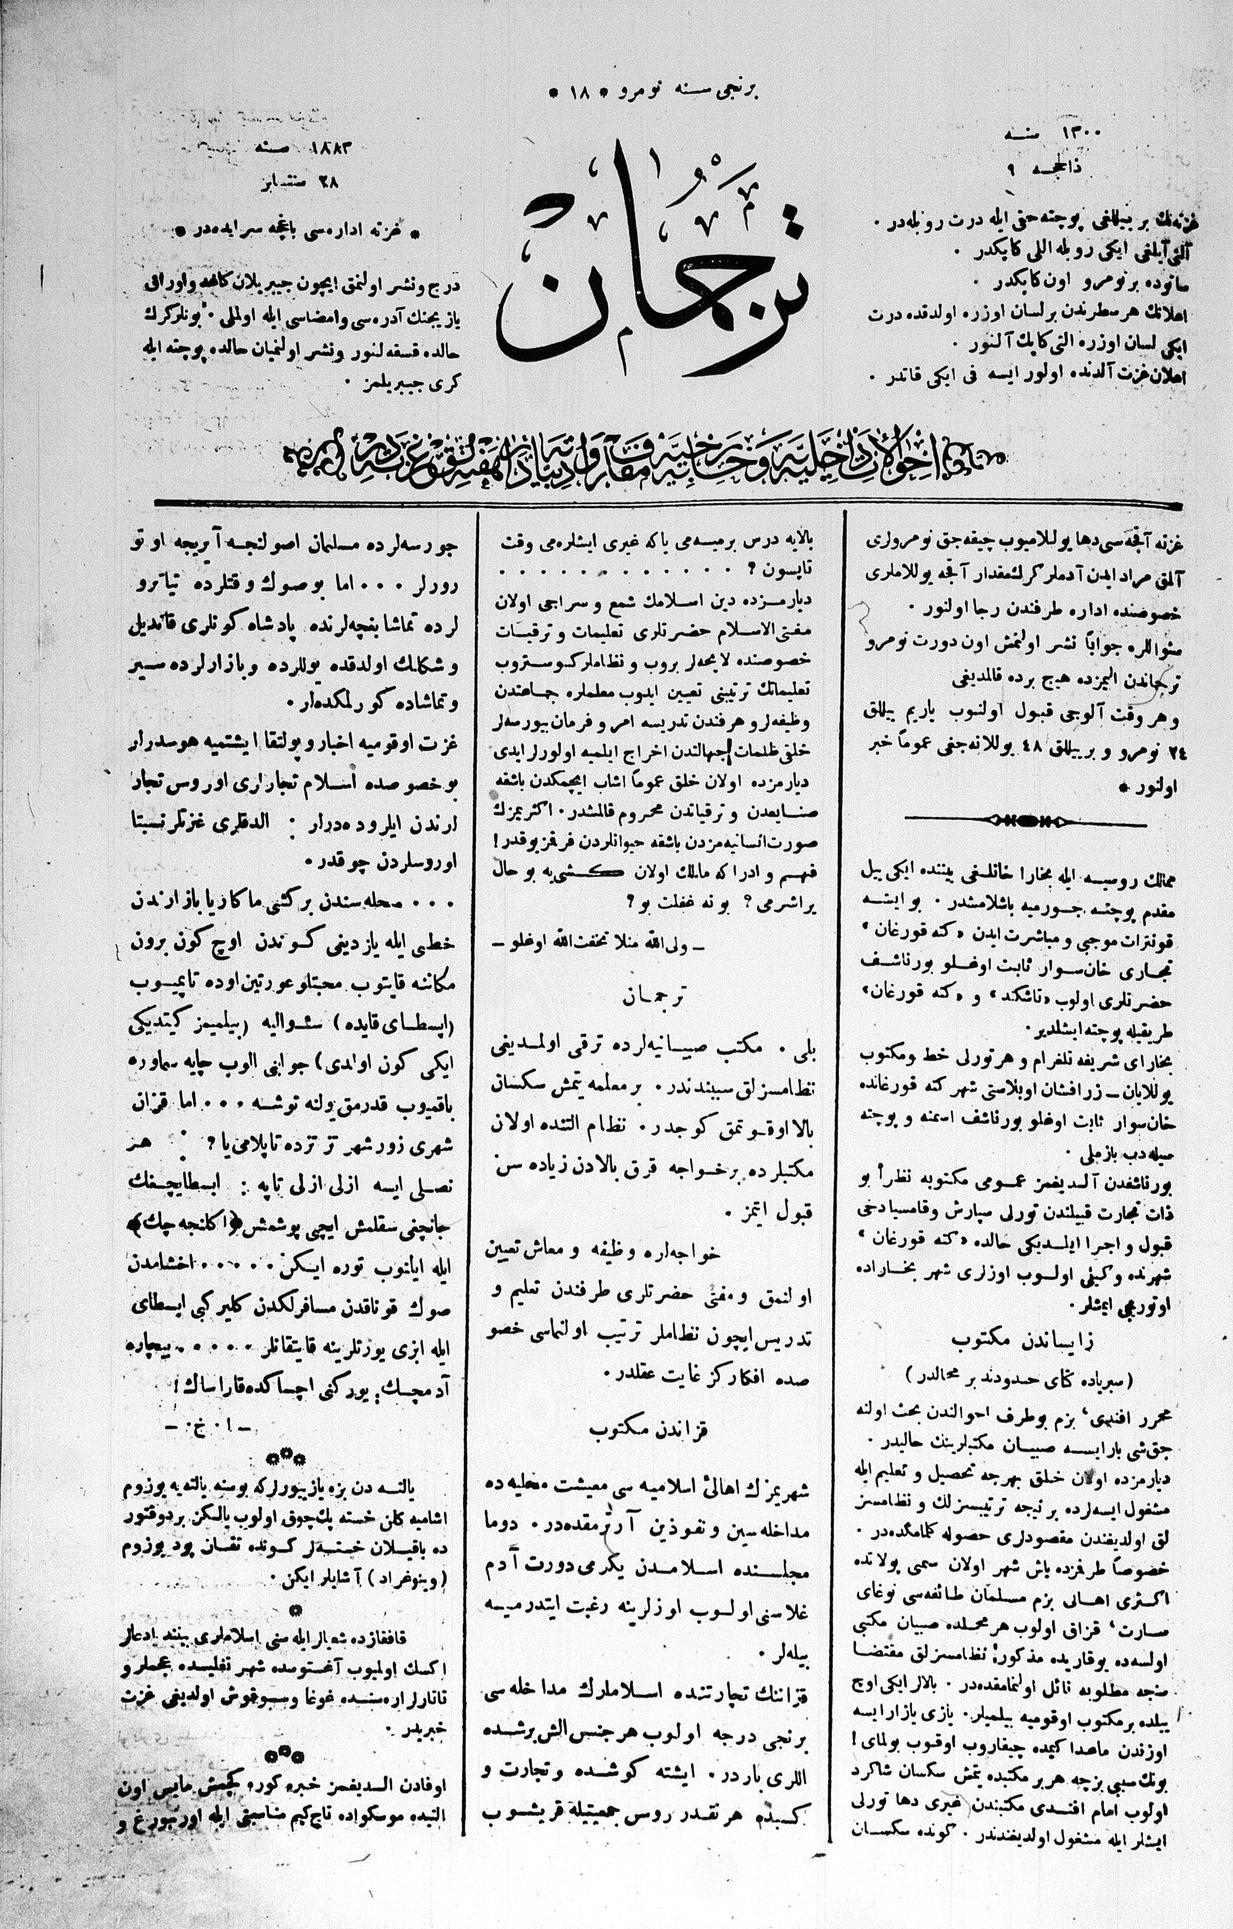 برنجی سنه نومرو * ۱۸ *
۱۳۰۰ سنه
ذالحجه ۹
غزته‌نك بر ییللغی پوچته حقی ایله درت روبله‌در .
آلتی آیلغی ایکی روبله اللی کاپکدر .
صاتوده بر نومرو اون کاپکدر .
اعلانك هر سطرندن بر لسان اوزره اولدقده درت
ایکی لسان اوزره التی کاپك آلنور .
اعلان غزت آلدنده اولور ایسه فی ایکی قاتدر .
ترجمان
۱۸۸۳ سنه
۲۸ سنتابر
* غزته اداره‌سی باغچه سرایده‌در *
درج و نشر اولنمق ایچون جیبریلان کاغد و اوراق
یازیجینك آدره‌سی و امضاسی ایله اولملی . بونلر کرك
حالده قسقه‌لنور و نشر اولنمیان حالده پوچته ایله
کری جیبریلمز .
احوالات داخلیه و خارجیه معارف و ادبیاته دائر هفته‌لق غزته‌در
غزته آقچه‌سی دها یوللامیوب چیقه‌جق نومرولری
آلمق مراد ایدن آدملر کرك مقدار آقچه یوللاملری
خصوصنده اداره طرفندن رجا اولنور .
سئواللره جواباً نشر اولنمش اون دورت نومرو
ترجماندن الیمزده هیچ برده قالمدیغی
و هر وقت آلوجی قبول اولنوب یاریم ییللق
۲۴ نومرو و بر ییللق ۴۸ یوللانه‌جغی عموماً خبر
اولنور *
ممالك روسیه ایله بخارا خانلغی بیننده ایکی ییل
مقدم پوچته جورمیه باشلامشدر . بو ایشه
قونترات موجبی و مباشرت ایدن «کته قورغان»
تجاری خان‌سوار ثابت اوغلو بورناشف
حضرتلری اولوب «تاشکند» و «کته قورغان»
طریقیله پوچته ایشلدیر .
بخارای شریفه تلغرام و هر تورلی خط و مکتوب
یوللایان ــ زرافشان اوبلاستی شهر کته قورغانده
خان‌سوار ثابت اوغلو بورناشف اسمنه و پوچته
سیله دیب یازملی .
بورناشفدن آلدیغمز عمومی مکتوبه نظراً بو
ذات تجارت قبیلندن تورلی سپارش و قامسیادخی
قبول و اجرا ایلدیکی حالده «کته قورغان»
شهرنده وکیلی اولوب اوزلری شهر بخاراده
اوتورمجی ایمشلر .
زایساندن مکتوب
( سبریاده ختای حدودنده بر محالدر )
محرر افندی ، بزم بو طرف احوالندن بحث اولنه
جق شی بار ایسه صبیان مکتبلرینك حالیدر .
دیارمزده اولان خلق بهرجه تحصیل و تعلیم ایله
مشغول ایسه‌لرده بر نیجه ترتیبسزلك و نظامسز
لق اولدیغندن مقصودلری حصوله کلمامکده‌در .
خصوصاً طرفزده باش شهر اولان سمی پولاتده
اکثری اهالی بزم مسلمان طائفه‌سی نوغای
صارت ، قزاق اولوب هر محلده صبیان مکتبی
اولسه‌ده یوقاریده مذکور نظامسزلق مقتضا
سنجه مطلوبه نائل اولنمامقده‌در . بالالر ایکی اوچ
ییلده بر مکتوب اوقومیه بیلمیلر . یازی یازار ایسه
اوزندن ماعدا کیمده چیقاروب اوقوب بولمای !
بونك سببی بزجه هر بر مکتبده یتمش سکسان شاکرد
اولوب امام افندی مکتبندن غیری دها تورلی
ایشلر ایله مشغول اولدیغندندر . کونده سکسان
بالایه درس برمیه‌می یاکه غیری ایشلره‌می وقت
تابسون ؟ . . . . . . . . . . . .
دیارمزده دین اسلامك شمع و سراجی اولان
مفتی الاسلام حضرتلری تعلیمات و ترقیات
خصوصنده لایحه‌لر یروب و نظاملر کوستروب
تعلیماتك ترتیبنی تعیین ایدوب معلملره جماعتدن
وظیفه‌لر و هر فندن تدریسه امر و فرمان بیورسه‌لر
خلقی ظلمات جهالتدن اخراج ایلمیه اولورلر ایدی
دیارمزده اولان خلق عموماً اشاب ایچمکدن باشقه
صنایعدن و ترقیاتدن محروم قالمشدر . اکثریمزك
صورت انسانیه‌مزدن باشقه حیوانلردن فرقمز یوقدر !
فهم و ادراکه مالك اولان کشی‌یه بو حال
یراشرمی ؟ بو نه غفلت بو ؟
ــ ولی الله منلا تحفت الله اوغلو ــ
ترجمان
بلی . مکتب صبیانیه‌لرده ترقی اولمدیغی
نظامسزلق سببندندر . بر معلمه یتمش سکسان
بالا اوقوتمق کوجدر . نظام التنده اولان
مکتبلرده بر خواجه قرق بالادن زیاده سن
قبول ایتمز .
خواجه‌لره وظیفه و معاش تعیین
اولنمق و مفتی حضرتلری طرفندن تعلیم و
تدریس ایچون نظاملر ترتیب اولنماسی خصو
صده افکارکز غایت عقلدر .
قزاندن مکتوب
شهریمزك اهالیٔ اسلامیه‌سی معیشت محلیه‌ده
مداخله‌سین و نفوذین آرترمقده‌در . دوما
مجلسنده اسلامدن یکرمی دورت آدم
غلاسنی اولوب اوزلرینه رغبت ایتدرمیه
بیله‌لر .
قزاننك تجارتنده اسلاملرك مداخله‌سی
برنجی درجه اولوب هر جنس الش برشده
اللری باردر . ایشته کوشده و تجارت و
کسبده هر نقدر روس جمعیتیله قریشوب
جورسه‌لرده مسلمان اصولنجه آیریجه اوتو
رورلر ... اما بو صوك وقتلرده تیاترو
لرده تماشا بغچه‌لرنده پادشاه کونلری قاندیل
و شکلك اولدقده یوللرده و بازارلرده سیر
و تماشاده کورلمکده‌لر .
غزت اوقومیه اخبار و پولتقا ایشتمیه هوسدرلر
بو خصوصده اسلام تجارلری اوروس تجار
لرندن ایلروده‌درلر : الدقلری غزتلر نسبتا
اوروسلردن چوقدر .
... محله‌سندن بر کشی ماکاریا بازارندن
خطی ایله یازدیغی کوندن اوچ کون برون
مکاننه قایتوب محبتلو عورتین اوده تاپمیوب
(اپسطای قایده) سئوالیه (بیلمیمز کیتدیکی
ایکی کون اولدی) جوابنی الوب چایه سماوره
باقمیوب قدرمق یولنه توشه ... اما قزان
شهری زور شهر تز تزده تاپلامی یا ؟ : هر
نصلی ایسه ازلی ازلی تاپه : ابسطایچغنك
جانچغی سقلمش ایچی پوشمش (اکلنجه چك)
ایله ایلنوب توره ایکن ..... اخشامدن
صوك قوناقدن مسافرلکدن کلیر کبی ابسطای
ایله ابزی یورتلرینه قایتقانلر ..... بیچاره
آدمچك : یورکنی اچساکده قاراساك !
ــ ا . خ . ــ
یالته‌دن بزه یازییورلر که بو سنه یالته‌یه یوزوم
اشامیه کلن خسته پك چوق اولوب یالکن بر دوقتور
ده باقیلان خسته‌لر کونده تقسان پود یوزوم
(وینوغراد) آشایلر ایکن .
*
قافقازده شعیالر ایله سنی اسلاملری بیننده
اکسك اولمیوب آغستوسده شهر تفلیسده عجملر و
تاتارلر اره‌سنده غوغا و سوغوش اولدیغی غزت
خبریدر .
اوفادن الدیغمز خبره کوره کچمش مایس اون
التیده موسکواده تاج کیم مناسبتی ایله اورنبورغ و